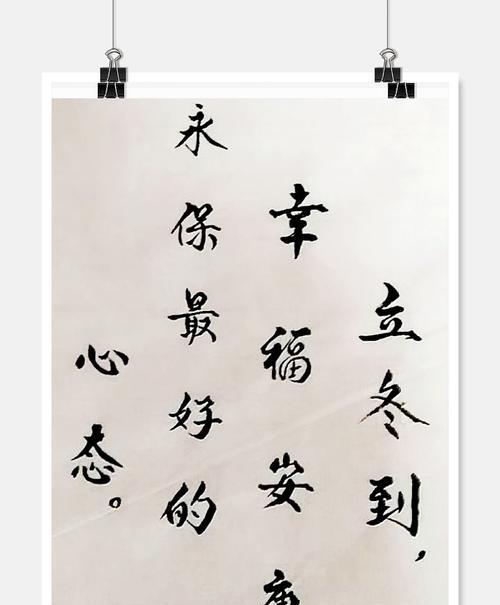 立冬到，
幸福安
永保最好的
心态。